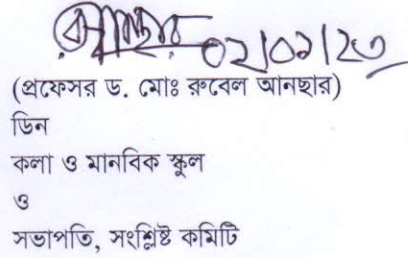 আনছার ০২/০৯/২৩
(প্রফেসর ড. মোঃ রুবেল আনছার)
ডিন
কলা ও মানবিক স্কুল
ও
সভাপতি, সংশ্লিষ্ট কমিটি